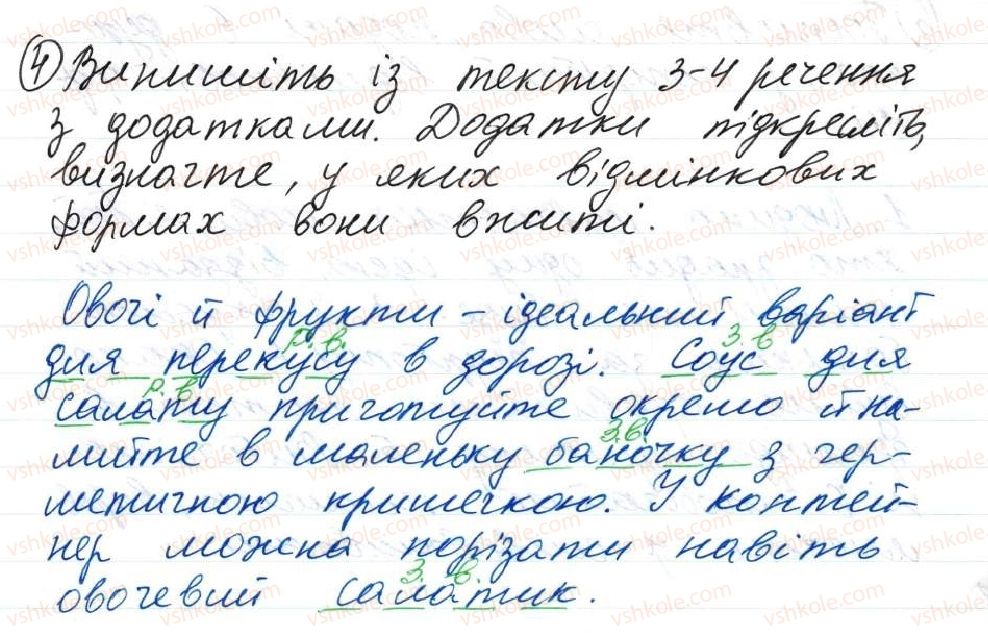 4) Випишіть із тексту 3-4 речення
з додатками. Додатки підкресліть,
визначте, у яких відмінкових
формах вони вжиті.
Овочі й фрукти – ідеальний варіант
Р. в. З. в
для перекусу в дорозі. Соус для
Р. в.
салату приготуйте окремо й на-
З.в.
лийте в маленьку баночку з гер-
метичною кришечкою. У контей-
нер можна порізати навіть
З. в.
овочевий салатик.
vshkole.com